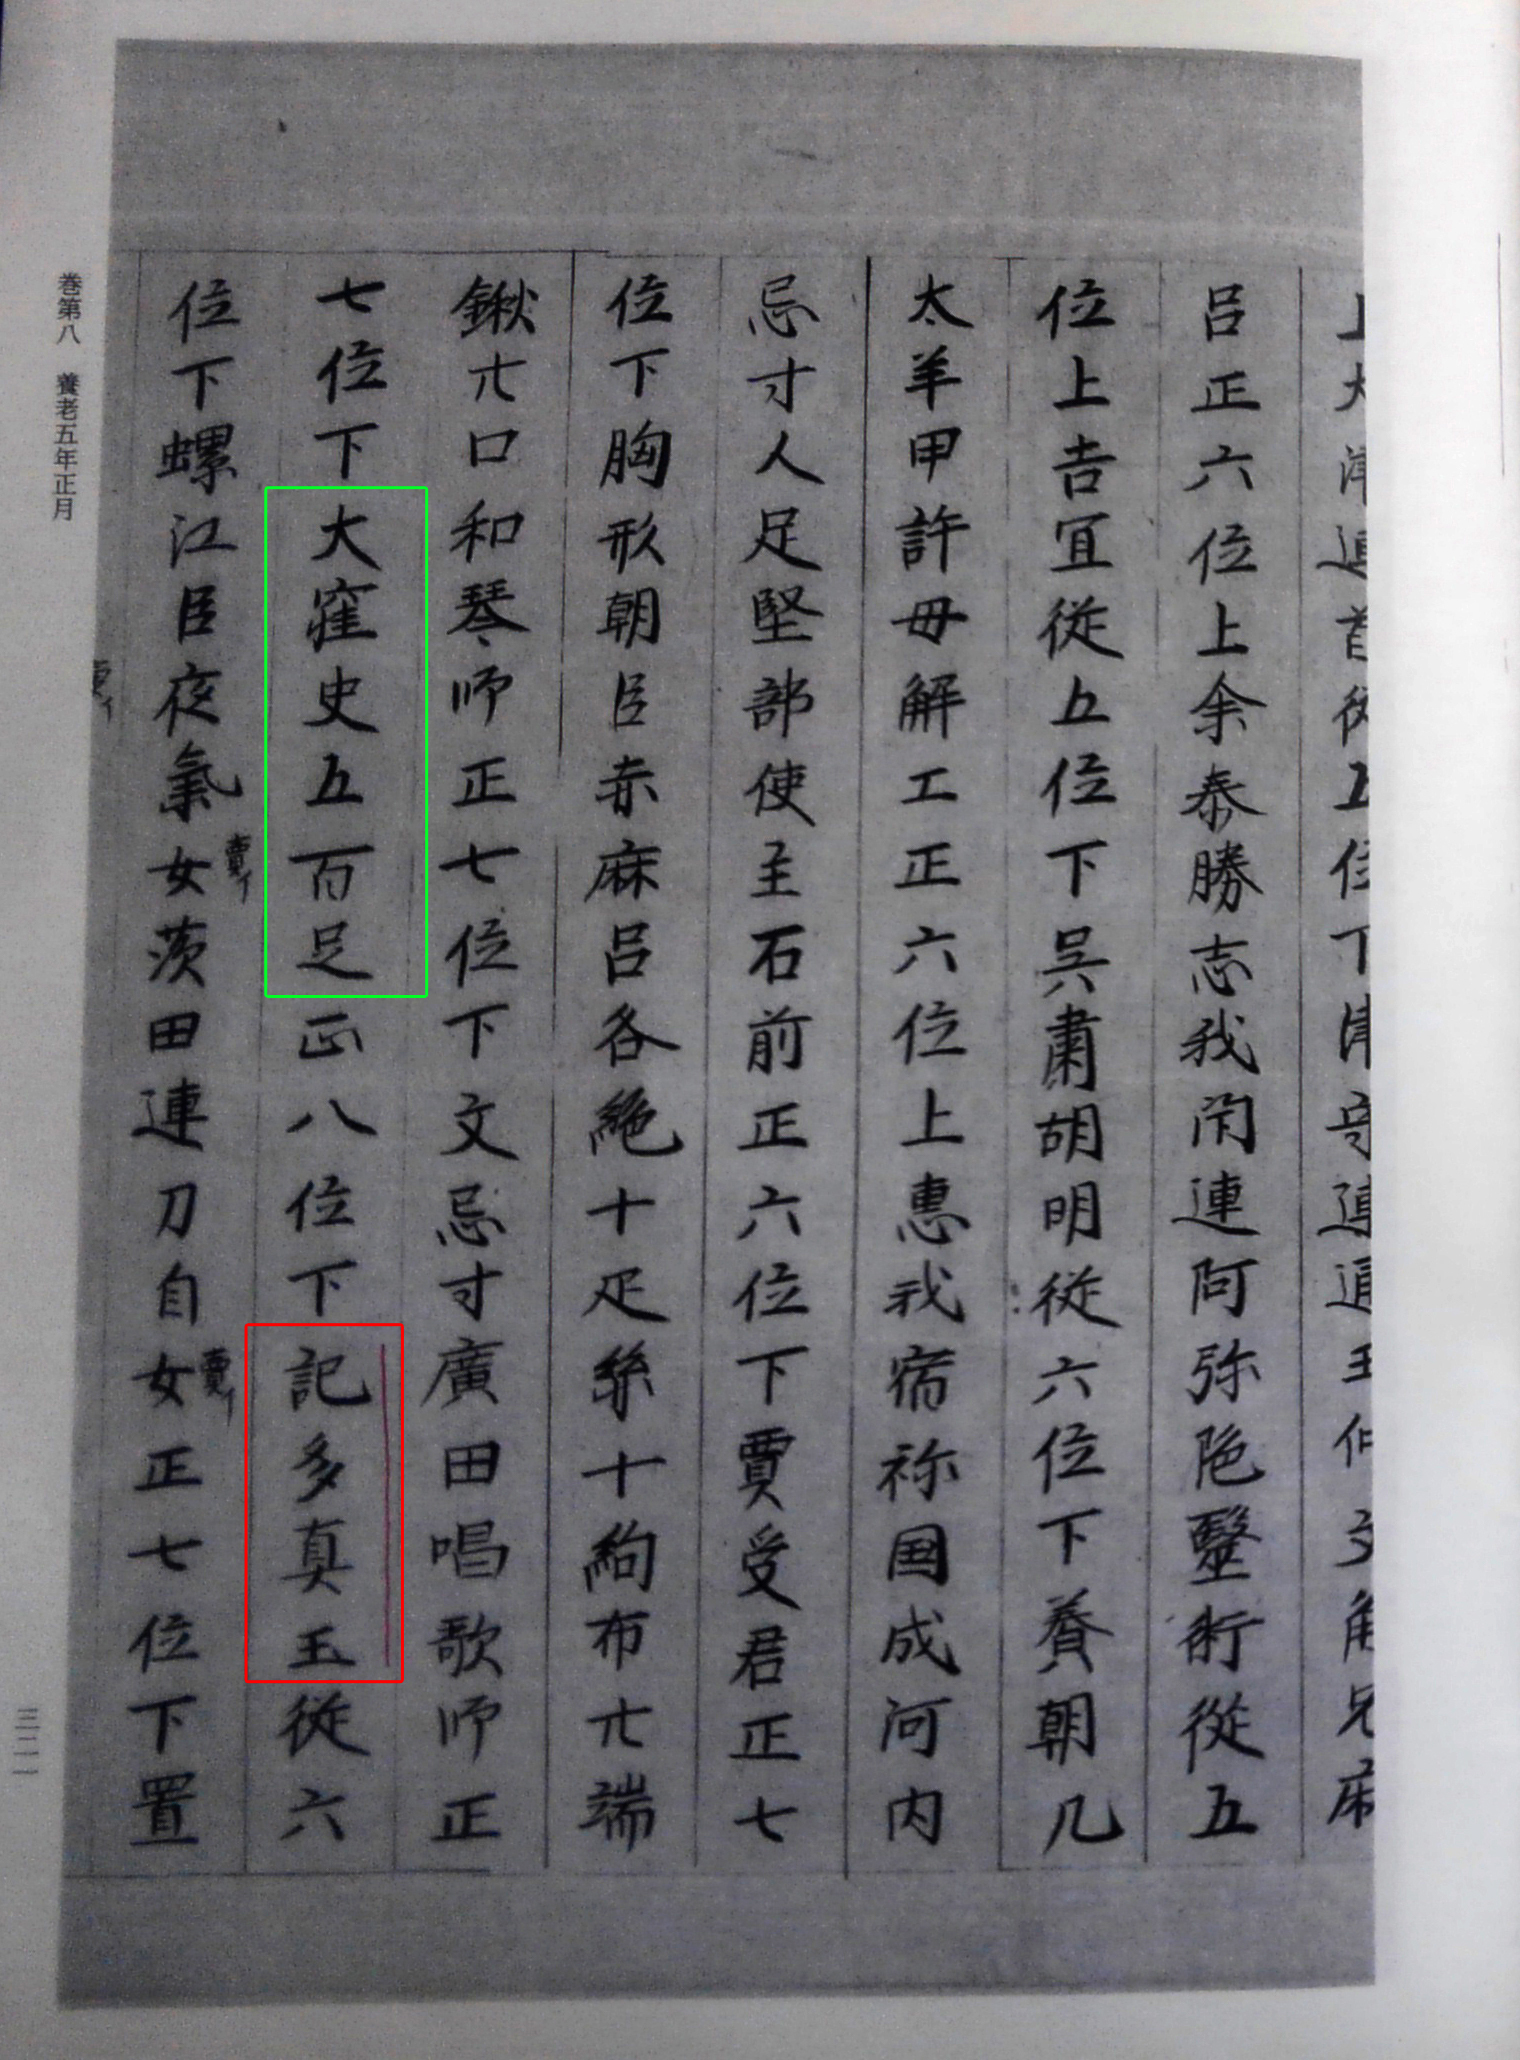 上大津連首従五位下津守連通王仲文角兄麻
呂正六位上余泰勝志我閇連阿弥陁毉術従五
位上吉冝従五位下呉肅胡明従六位下賁朝几
太羊甲許毋解工正六位上惠我宿祢国成河内
忌寸人足堅部使主石前正六位下賈受君正七
位下胸形朝臣赤麻呂各絁十疋絲十絇布廾端
鍬廾口和琴師正七位下文忌寸廣田唱歌師正
七位下大窪史五百足正八位下記多真玉従六
位下螺江臣夜氣女茨田連刀自女正七位下置
賣イ
賣イ
賣イ
巻第八 養老五年正月
三二一